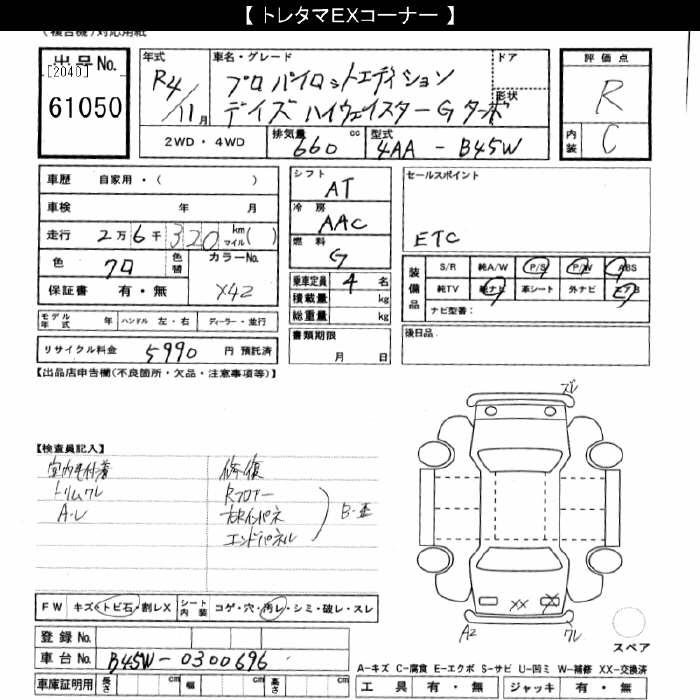 【 トレタマEXコーナー 】
(複合機)対応用紙
出品No. 年式 車名・グレード ドア 評価点
[2040] R4/11月 プロパイロットエディション 形状 R
61050 デイズ ハイウェイスターG ターボ
2WD・4WD 排気量 660 cc 型式 4AA - B45W 内装 C
車歴 自家用・( ) シフト AT セールスポイント
車検 年 月 冷房 AAC
走行 2万6千320 km マイル( ) 燃料 G ETC
色 クロ 色替 カラーNo. X42 乗車定員 4 名 装備品 S/R 純A/W P/S P/W ABS
保証書 有・無 積載量 kg 純TV 純ナビ 革シート 外ナビ エアB
総重量 kg ナビ型番:
モデル年式 年 ハンドル 左・右 ディーラー・並行 書類期限 月 日 後日品
リサイクル料金 5990 円 預託済
【出品店申告欄(不良箇所・欠品・注意事項等)】
ズレ
【検査員記入】
室内毛付着 修復
トリムワレ Rフロアー
A-レ
エンドパネル
XX
FW キズ・トビ石・割レX シート内装 コゲ・穴・汚レ・シミ・破レ・スレ
登録No. A2 ワレ スペア
車台No. B45W-0300696
A-キズ C-腐食 E-エクボ S-サビ U-凹ミ W-補修 XX-交換済
車庫証明用 長さ cm 幅 cm 高さ cm 工具 有・無 ジャッキ 有・無